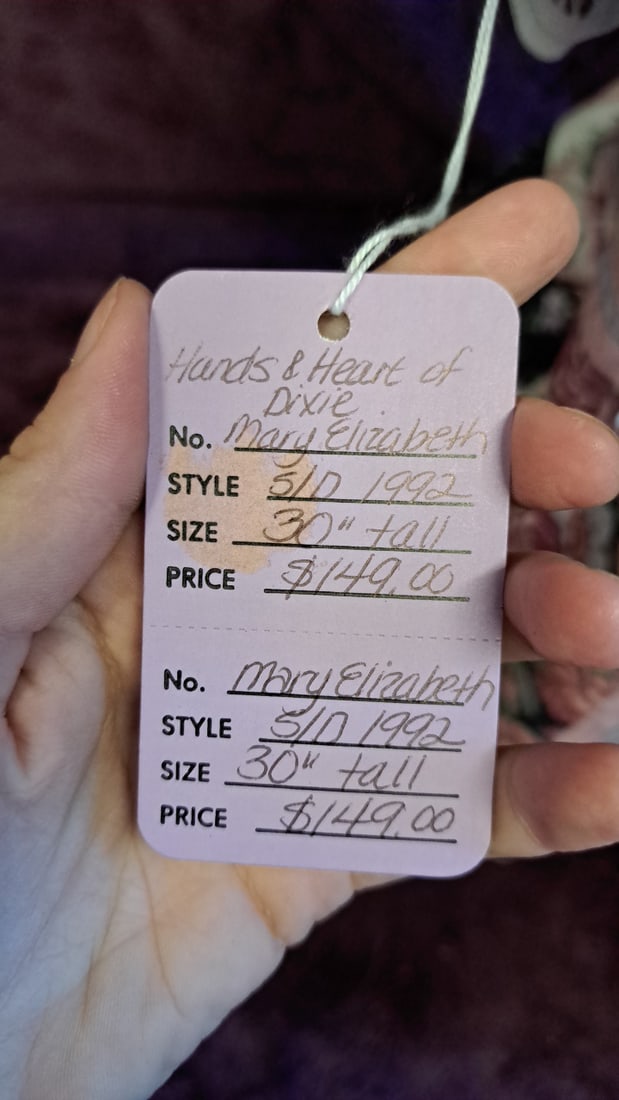 Hands & Heart of
Dixie
No. Mary Elizabeth
STYLE S/D 1992
SIZE 30" tall
PRICE $149.00
No. Mary Elizabeth
STYLE S/D 1992
SIZE 30" tall
PRICE $149.00